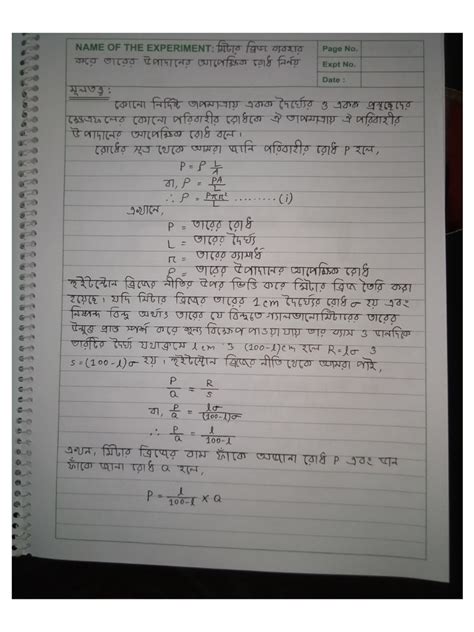 NAME OF THE EXPERIMENT: মিটার ব্রিজ ব্যবহার
করে তারের উপাদানের আপেক্ষিক রোধ নির্ণয়
Page No.
Expt No.
Date :
মূলতত্ত্ব:
কোনো নির্দিষ্ট তাপমাত্রায় একক দৈর্ঘ্যের ও একক প্রস্থচ্ছেদের
ক্ষেত্রফলের কোনো পরিবাহীর রোধকে ঐ তাপমাত্রায় ঐ পরিবাহীর
উপাদানের আপেক্ষিক রোধ বলে।
রোধের সূত্র থেকে আমরা জানি পরিবাহীর রোধ P হলে,
P = ρ L/A
বা, ρ = PA/L
∴ ρ = Pπr²/L ......... (i)
এখানে,
P = তারের রোধ
L = তারের দৈর্ঘ্য
r = তারের ব্যাসার্ধ
ρ = তারের উপাদানের আপেক্ষিক রোধ
হুইটস্টোন ব্রিজের নীতির উপর ভিত্তি করে মিটার ব্রিজ তৈরি করা
হয়েছে। যদি মিটার ব্রিজের তারের 1 cm দৈর্ঘ্যের রোধ σ হয় এবং
নিষ্পন্দ বিন্দু অর্থাৎ তারের যে বিন্দুতে গ্যালভানোমিটারের তারের
উন্মুক্ত প্রান্ত স্পর্শ করে শূন্য বিক্ষেপ পাওয়া যায় তার বাম ও ডানদিকে
তারটির দৈর্ঘ্য যথাক্রমে l cm ও (100-l)cm হলে R=lσ ও
S=(100-l)σ হয়। হুইটস্টোন ব্রিজের নীতি থেকে আমরা পাই,
P/Q = R/S
বা, P/Q = lσ/(100-l)σ
∴ P/Q = l/100-l
এখন, মিটার ব্রিজের বাম ফাঁকে অজানা রোধ P এবং ডান
ফাঁকে জানা রোধ Q হলে,
P = l/100-l × Q